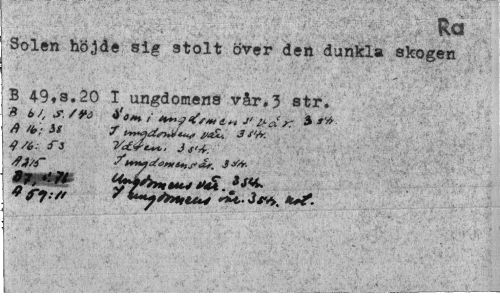 Ra
Solen höjde sig stolt över den dunkla skogen
B 49,s.20 I ungdomens vår. 3 str.
B 61, s. 140 Som i ungdomens vår. 3 str.
A 16: 38 I ungdomens vår. 3 str.
A 16: 53 Våren. 3 str.
A 215 I ungdomens år. 3 str.
B7, s: 71 Ungdomens vår. 3 str.
A 59:11 I ungdomens vår. 3 str. not.